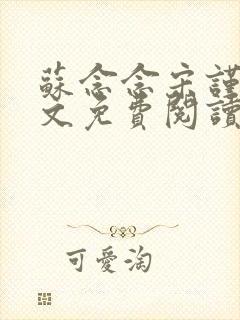 蘇念念宋謹
文免費閱讀
可愛淘